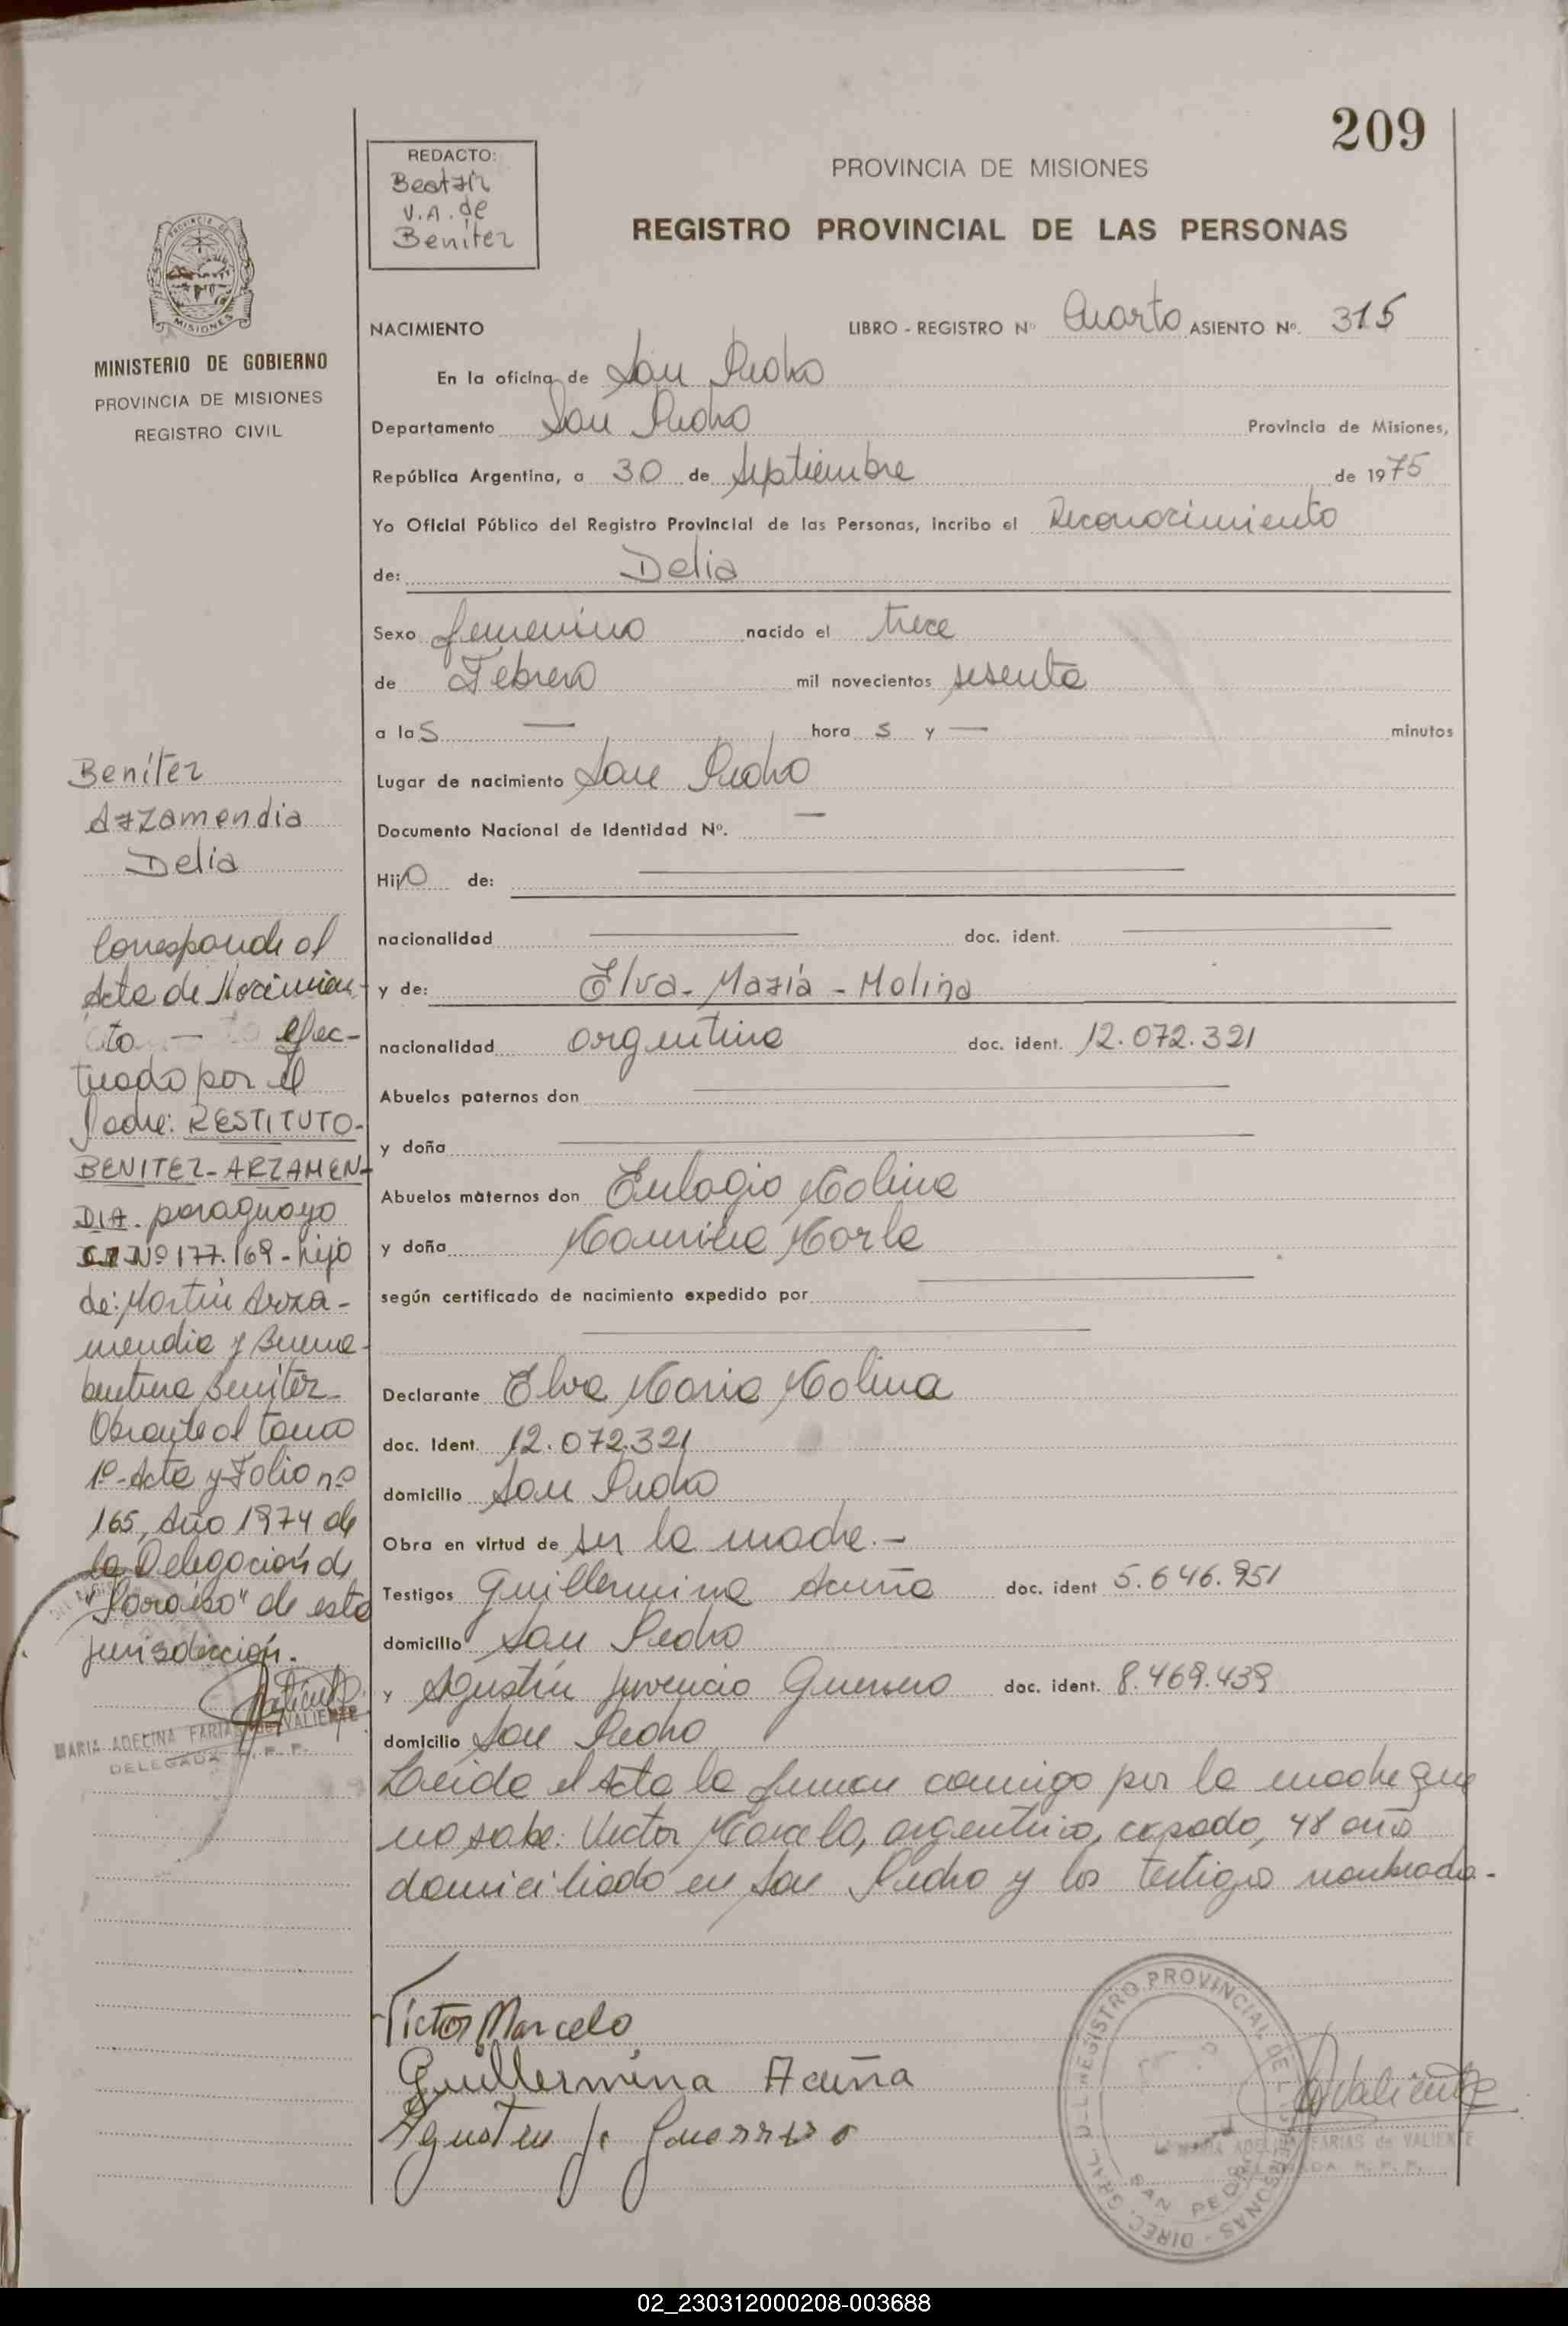 209
REDACTO:
Beatriz
V.A. de
Benítez
PROVINCIA DE MISIONES
REGISTRO PROVINCIAL DE LAS PERSONAS
MISIONES
MINISTERIO DE GOBIERNO
PROVINCIA DE MISIONES
REGISTRO CIVIL
NACIMIENTO LIBRO - REGISTRO Nº Cuarto ASIENTO Nº. 315
En la oficina de San Pedro
Departamento San Pedro Provincia de Misiones,
República Argentina, a 30 de Septiembre de 1975
Yo Oficial Público del Registro Provincial de las Personas, incribo el Reconocimiento
de: Delia
Sexo femenino nacido el trece
de Febrero mil novecientos sesenta
a las — horas y — minutos
Lugar de nacimiento San Pedro
Documento Nacional de Identidad Nº. —
Hijo de:
nacionalidad doc. ident.
y de: Elva - María - Molina
nacionalidad argentina doc. ident. 12.072.321
Abuelos paternos don
y doña
Abuelos maternos don Eulogio Molina
y doña Maurilia Morle
según certificado de nacimiento expedido por
Declarante Elva Maria Molina
doc. Ident. 12.072.321
domicilio San Pedro
Obra en virtud de ser la madre.-
Testigos Guillermina Acuña doc. ident 5.646.951
domicilio San Pedro
y Agustín Juvencio Guerrero doc. ident. 8.469.439
domicilio San Pedro
Leída el Acta la firman conmigo por la madre que
no sabe: Victor Marcelo, argentino, casado, 48 años
domiciliado en San Pedro y los testigos nombrados.-
Benítez
Arzamendia
Delia
Corresponde al
Acta de Nacimien-
to — efec-
tuado por el
Padre: RESTITUTO-
BENITEZ-ARZAMEN-
DIA. paraguayo
Nº 177.169 - hijo
de: Martín Arza-
mendia y Buena-
bentura Benítez-
Obrante al tomo
1º-Acta y Folio nº
165, Año 1974 de
la Delegación de
"Paraíso" de esta
jurisdicción.-
Valiente
MARIA ADELINA FARIAS de VALIENTE
DELEGADA R. P. P.
Victor Marcelo
Guillermina Acuña
Agustin J. Guerrero
DIREC. GRAL. DEL REGISTRO PROVINCIAL DE LAS PERSONAS -
SAN PEDRO
Valiente
MARIA ADELINA FARIAS de VALIENTE
DELEGADA R. P. P.
02_230312000208-003688